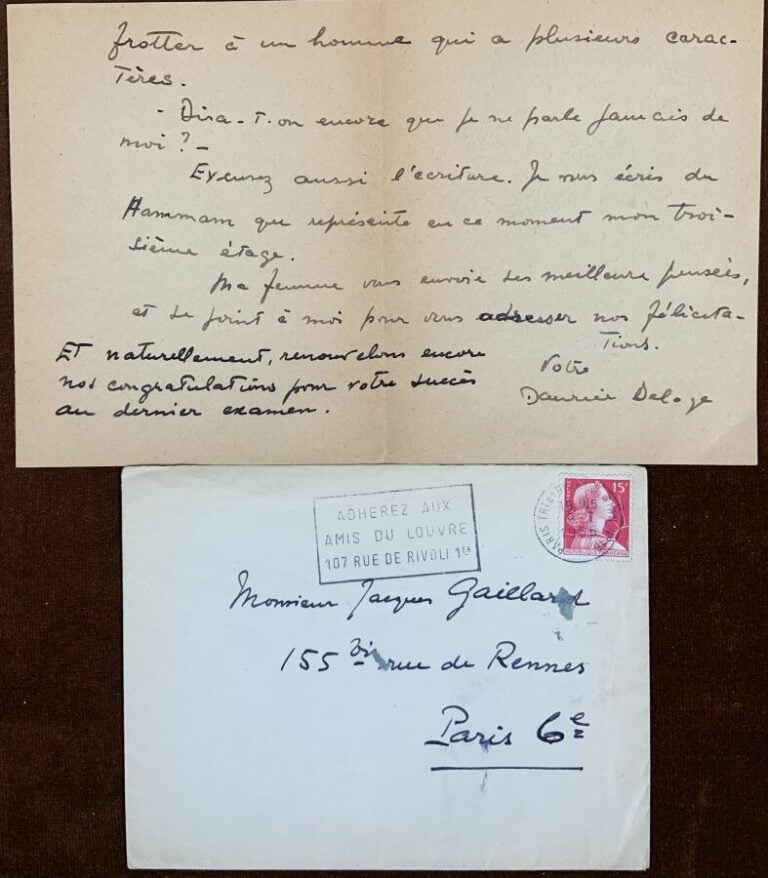 frotter à un homme qui a plusieurs carac-
tères.
- Dira-t-on encore que je ne parle jamais de
moi ? -
Excusez aussi l'écriture. Je vous écris du
Hammam que représente en ce moment mon troi-
sième étage.
Ma femme vous envoie ses meilleure pensées,
et se joint à moi pour vous adresser nos félicita-
tions.
Votre
Maurice Delage
Et naturellement, renouvelons encore
nos congratulations pour votre succès
au dernier examen.
ADHEREZ AUX
AMIS DU LOUVRE
107 RUE DE RIVOLI 1er
15F
POSTES
REPUBLIQUE FRANÇAISE
PARIS
Monsieur Jacques Gaillard
155 bis rue de Rennes
Paris 6e